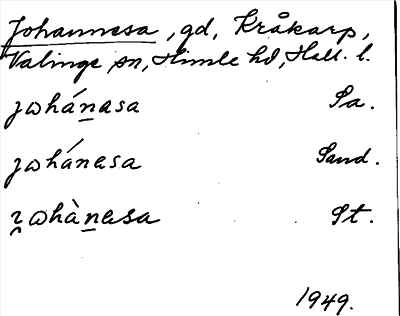 Johannesa, gd, Kråkarp,
Valinge sn, Himle hd, Hall. l.
jωhánasa Sa.
jωhánasa Sand.
ɀωhànasa St.
1949.